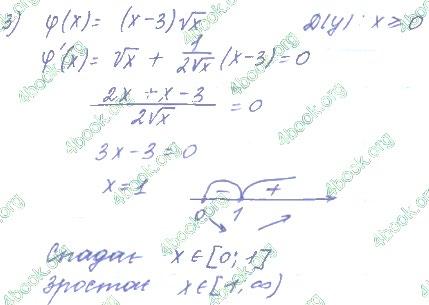 3) φ(x) = (x-3)√x D(y): x ≥ 0
φ'(x) = √x + 1/(2√x) (x-3) = 0
(2x + x - 3)/(2√x) = 0
3x - 3 = 0
x = 1
- +
0 1
Спадає x ∈ [0; 1]
Зростає x ∈ [1; ∞)
4book.org